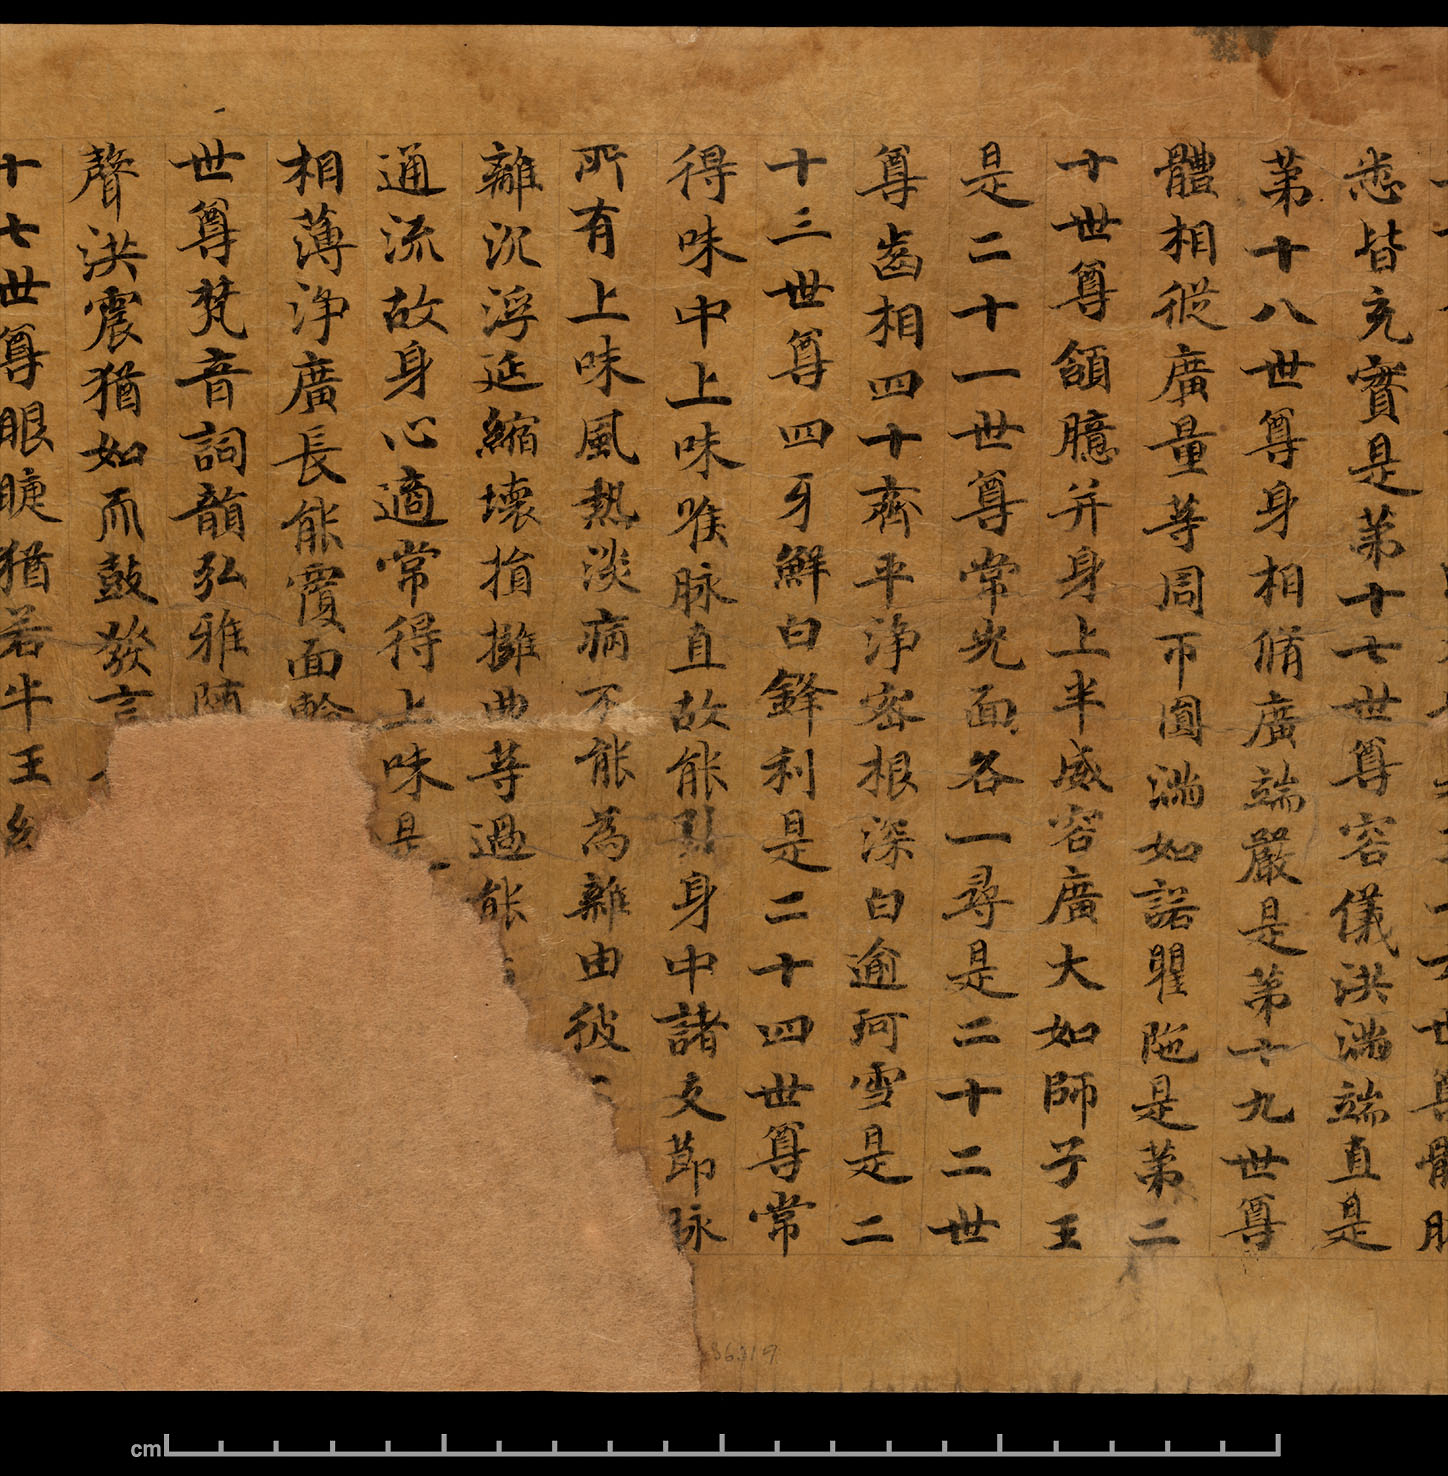 悉皆充實是第十七世尊容儀洪滿端直是
第十八世尊身相脩廣端嚴是第十九世尊
體相從廣量等周帀圓滿如諾瞿陁是第二
十世尊頷臆并身上半威容廣大如師子王
是二十一世尊常光面各一尋是二十二世
尊齒相四十齊平淨密根深白逾珂雪是二
十三世尊四牙鮮白鋒利是二十四世尊常
得味中上味喉脉直故能引身中諸支節脉
所有上味風熱淡病不能為雜由彼
離沉浮延縮壞損擁曲等過能
通流故身心適常得上味是
相薄淨廣長能覆面輪
世尊梵音詞韻弘雅隨
聲洪震猶如而鼓發言
十七世尊眼睫猶若牛王
cm